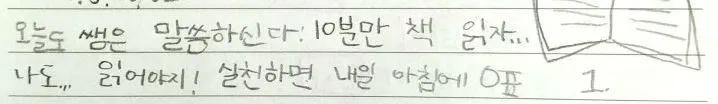 오늘도 쌤은 말씀하신다: 10분만 책 읽자...
나도... 읽어야지! 실천하면 내일 아침에 O표 1.